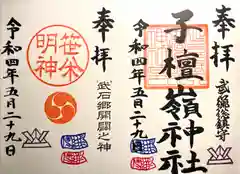 奉拝
武石総鎮守
子檀嶺神社
令和四年五月二十九日
奉拝
笹焼明神
武石郷開闢之神
令和四年五月二十九日